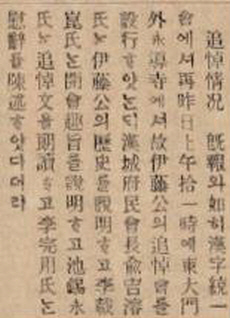 追悼情況 旣報와如히漢字統一
會에셔再昨日上午拾一時에東大門
外永導寺에셔故伊藤公의追悼會를
設行ᄒᆞ얏ᄂᆞᆫᄃᆡ漢城府民會長兪吉濬
氏ᄂᆞᆫ伊藤公의歷史를說明ᄒᆞ고李載
崑氏ᄂᆞᆫ開會趣旨를說明ᄒᆞ고池錫永
氏ᄂᆞᆫ追悼文을朗讀ᄒᆞ고李完用氏ᄂᆞᆫ
慰辭를陳述ᄒᆞ얏다더라